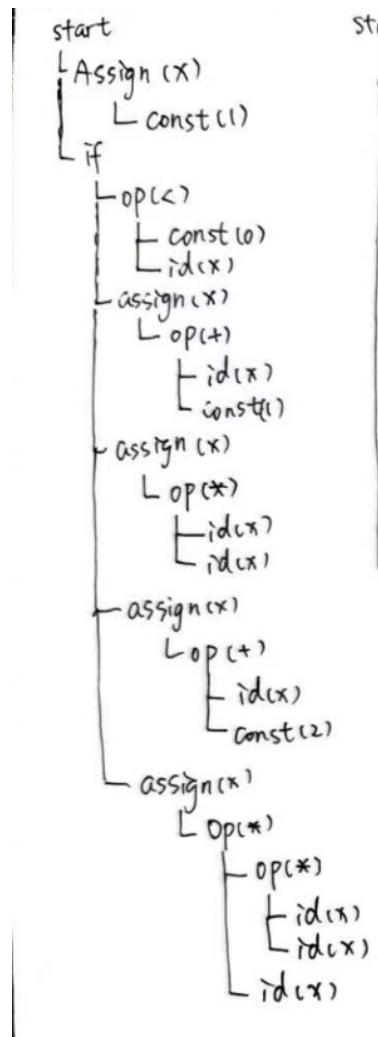 start
Assign (x)
const(1)
if
op(<)
const(0)
id(x)
assign(x)
op(+)
id(x)
const(1)
assign(x)
op(*)
id(x)
id(x)
assign(x)
op(+)
id(x)
const(2)
assign(x)
Op(*)
op(*)
id(x)
id(x)
id(x)